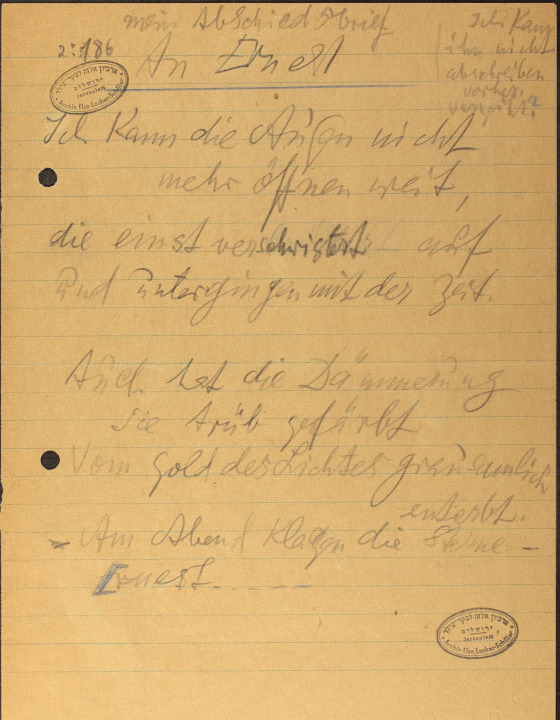 mein Abschiedsbrief
Ich kann
ihn nicht
abschreiben
vorher.
verzeiht.
2:186
An Ernest
ארכיון אלזה לסקר-שילר
ירושלים
Jerusalem
Archiv Else Lasker-Schüler
Ich kann die Augen nicht
mehr öffnen weit,
die einst auf
und untergingen mit der Zeit.
Auch hat die Dämmerung
sie trüb gefärbt
Vom Gold des Lichtes grausamlich
enterbt.
– Am Abend klagen die Sterne –
Ernest.-----
ארכיון אלזה לסקר-שילר
ירושלים
Jerusalem
Archiv Else Lasker-Schüler